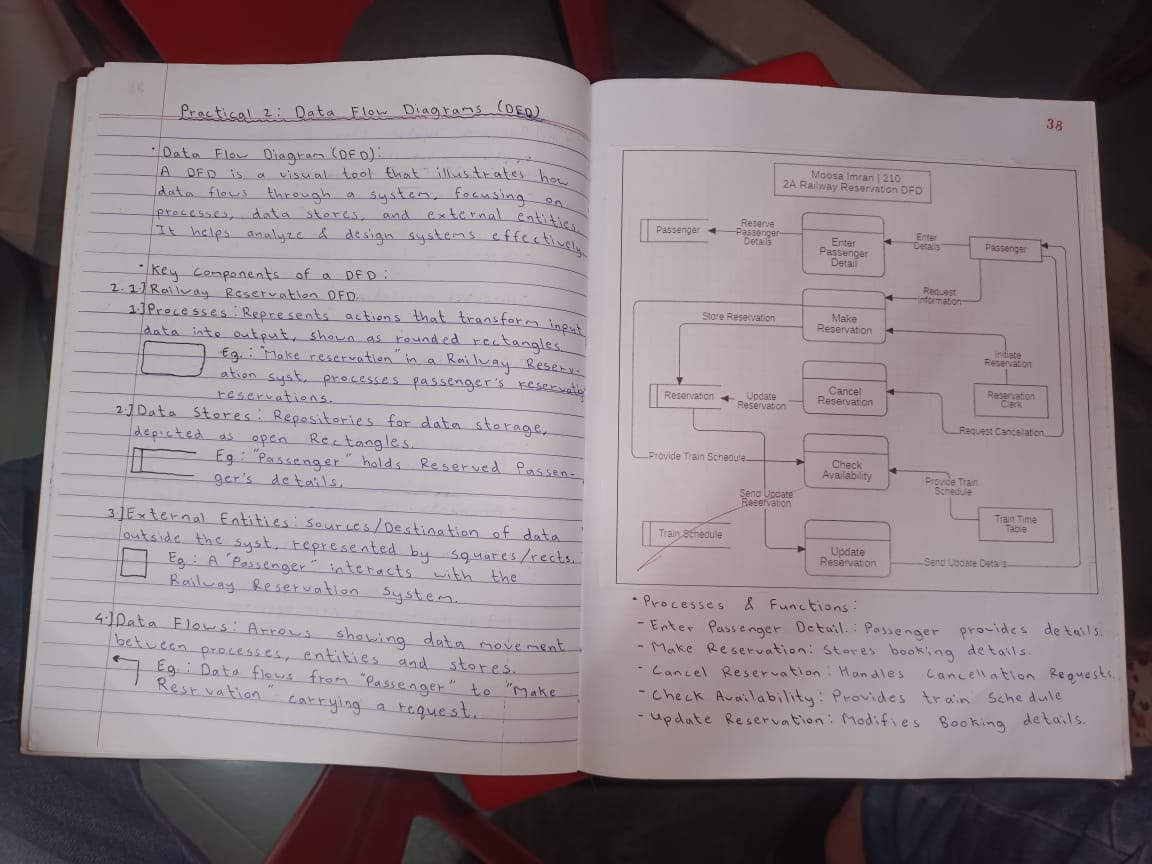 Practical 2: Data Flow Diagrams (DFD)
• Data Flow Diagram (DFD):
A DFD is a visual tool that illustrates how
data flows through a system, focusing on
processes, data stores, and external entities.
It helps analyze & design systems effectively.
• Key Components of a DFD:
2. 1.] Railway Reservation DFD.
1.] Processes: Represents actions that transform input
data into output, shown as rounded rectangles.
Eg.: "Make reservation" in a Railway Reserv-
ation syst, processes passenger's reservatio
reservations.
2.] Data Stores: Repositories for data storage,
depicted as open Rectangles.
Eg: "Passenger" holds Reserved Passen-
ger's details.
3.] External Entities: Sources/Destination of data
outside the syst, represented by squares/rects.
Eg: A "Passenger" interacts with the
Railway Reservation system.
4.] Data Flows: Arrows showing data movement
between processes, entities and stores.
Eg: Data flows from "Passenger" to "Make
Resrvation" carrying a request.
38
Moosa Imran | 210
2A Railway Reservation DFD
Passenger
Reserve
Passenger
Details
Enter
Passenger
Detail
Enter
Details
Passenger
Request
Information
Store Reservation
Make
Reservation
Initiate
Reservation
Reservation
Update
Reservation
Cancel
Reservation
Reservation
Clerk
Request Cancellation
Provide Train Schedule
Check
Availability
Provide Train
Schedule
Send Update
Reservation
Train Schedule
Train Time
Table
Update
Reservation
Send Update Details
• Processes & Functions:
- Enter Passenger Detail.: Passenger provides details.
- Make Reservation: Stores booking details.
- Cancel Reservation: Handles Cancellation Requests.
- Check Availability: Provides train Schedule
- Update Reservation: Modifies Booking details.